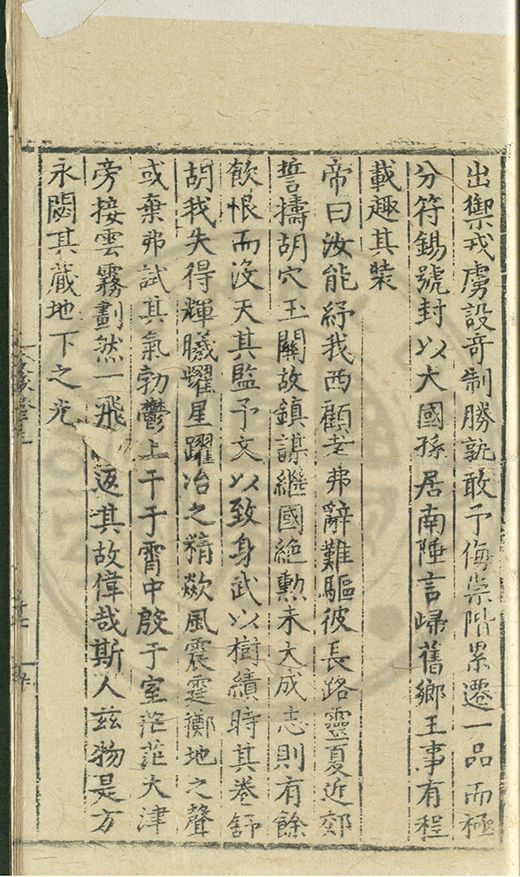 出禦戎虜設奇制勝孰敢予侮崇階累遷一品而極
分符錫號封以大國孫居南陲言歸舊鄉王事有程
載趣其裝
帝曰汝能紓我西顧老弗辭難驅彼長路靈夏近郊
誓擣胡穴玉關故鎮謀繼國絶勲未大成志則有餘
飲恨而沒天其監予文以致身武以樹績時其卷舒
胡我失得輝曦耀星躍冶之精歘風震霆擲地之聲
或棄弗試其氣勃鬱上干于霄中殷于室茫茫大津
旁接雲霧劃然一飛返其故偉哉斯人兹物是方
永閟其藏地下之光